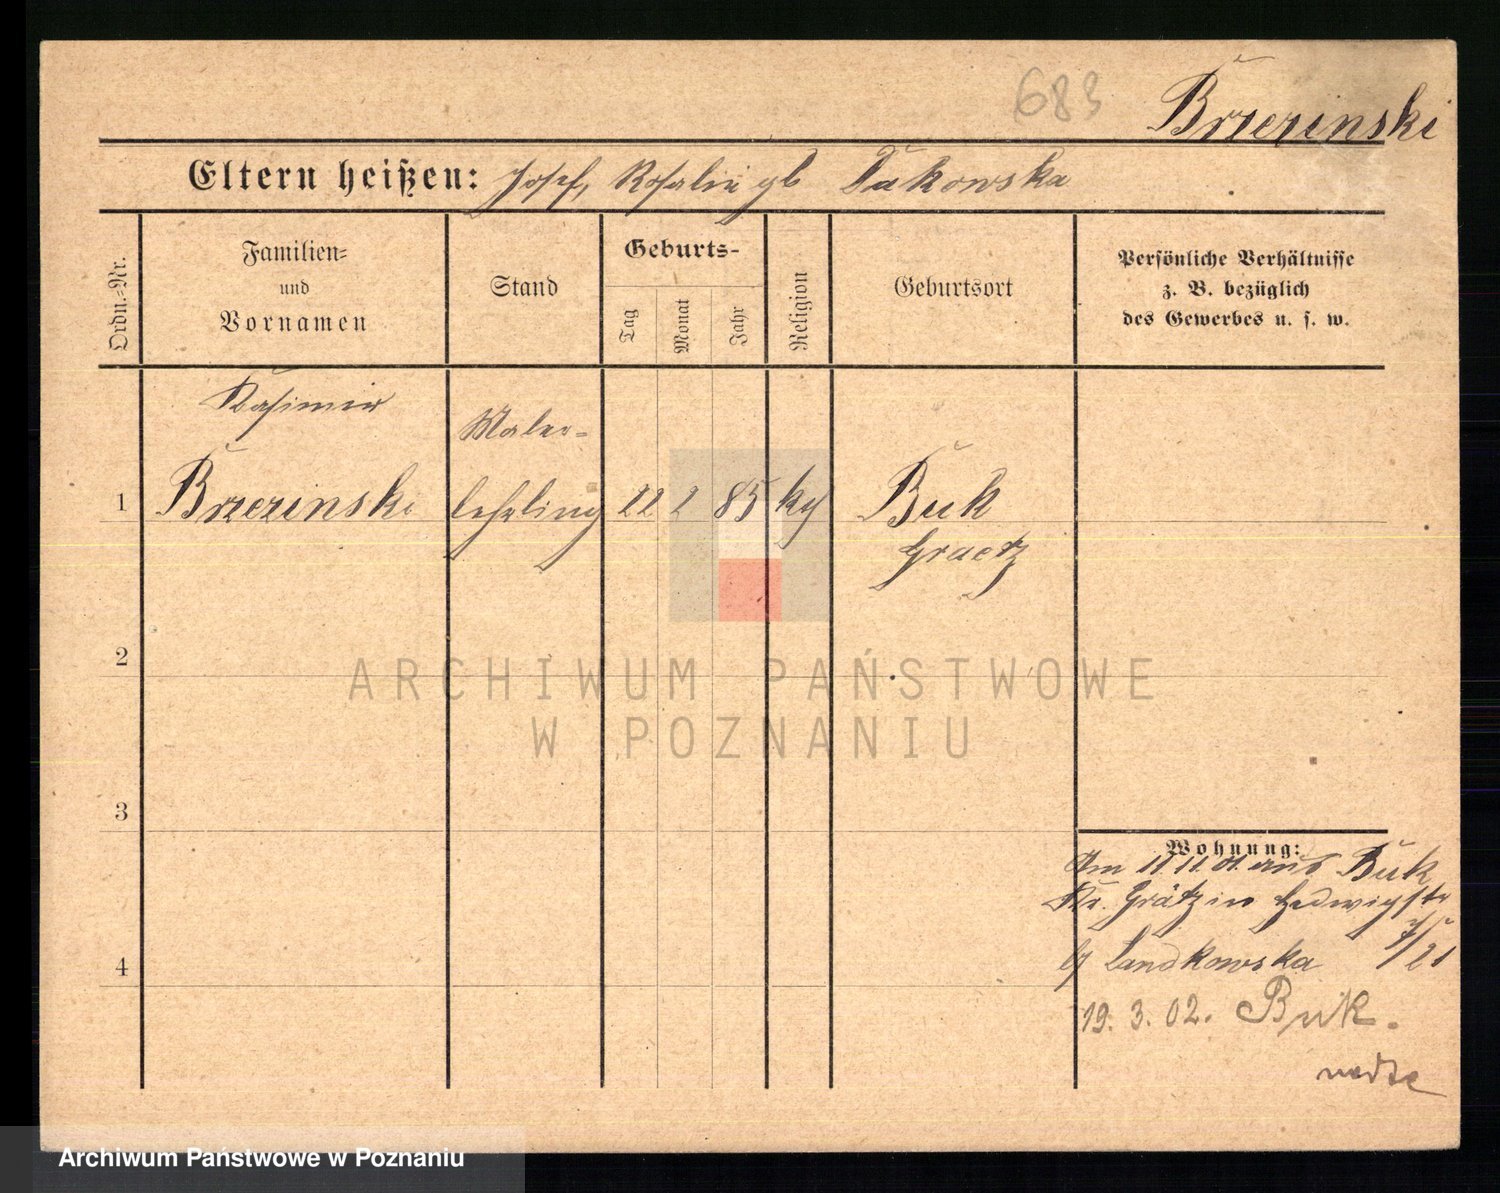 683
Brzezinski
Eltern heißen: Josef, Rosalie gb Takowska
Ordn.=Nr.
Familien=
und
Vornamen
Stand
Geburts-
Tag
Monat
Jahr
Religion
Geburtsort
Persönliche Verhältnisse
z. B. bezüglich
des Gewerbes u. s. w.
Kasimir
Maler=
1 Brzezinski lehrling 22 2 85 kg Buk
Graetz
2
3
4
Wohnung:
Am 11.11.01. aus Buk
Kr. Grätz in Hedwigstr
b/ Landkowska 7/21
19. 3. 02. Buk.
ARCHIWUM PAŃSTWOWE
W POZNANIU
Archiwum Państwowe w Poznaniu